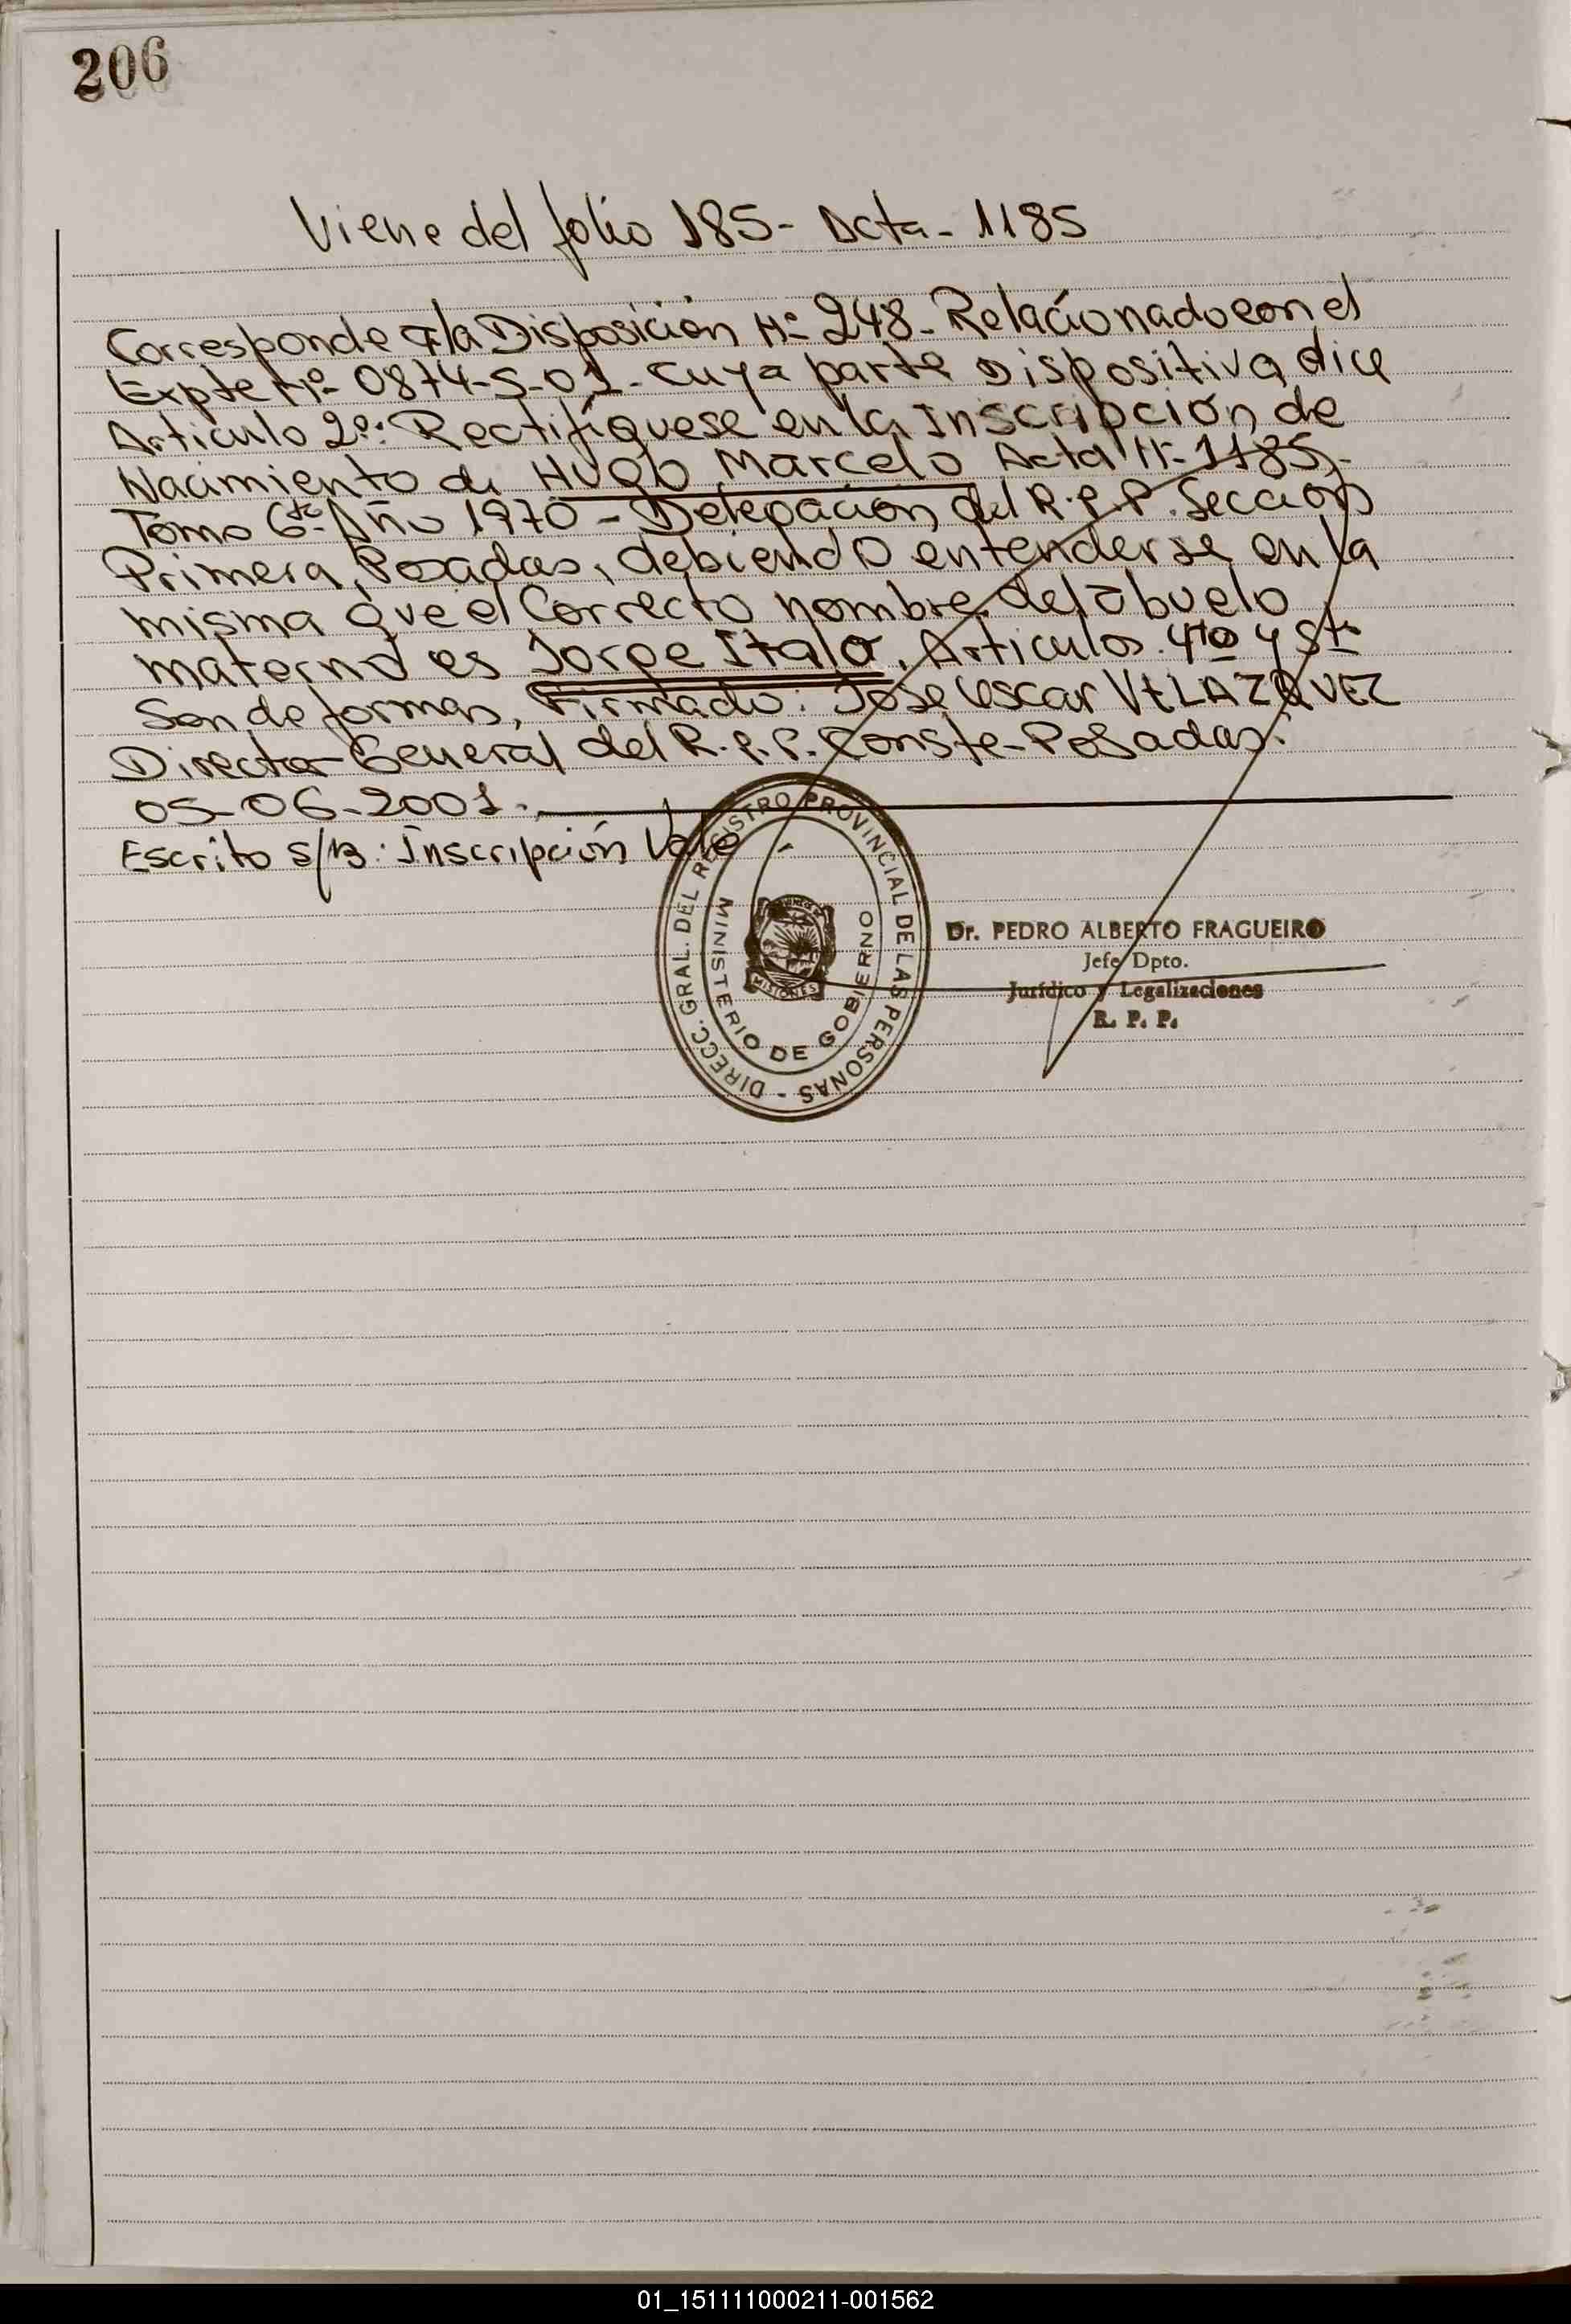 206
Viene del folio 185- Acta- 1185
Corresponde a/la Disposición Nº 248- Relacionado con el
Expte Nº 0874-S-01- cuya parte Dispositiva dice
Articulo 2º: Rectifíquese en la Inscripción de
Nacimiento de Hugo Marcelo Acta Nº 1185-
Tomo 6to- Año 1970 - Delegación del R.P.P. Sección
Primera, Posadas, debiendo entenderse en la
misma que el Correcto nombre del abuelo
materno es Jorge Italo. Articulos. 4to y 5to
Son de formas, Firmado: José Oscar VELAZQUEZ
Director General del R.P.P. Conste-Posadas:
05-06-2001.
Escrito s/B: Inscripción Vale -
DIRECC. GRAL. DEL REGISTRO PROVINCIAL DE LAS PERSONAS -
MINISTERIO DE GOBIERNO
MISIONES
Dr. PEDRO ALBERTO FRAGUEIRO
Jefe Dpto.
Jurídico y Legalizaciones
R. P. P.
01_151111000211-001562